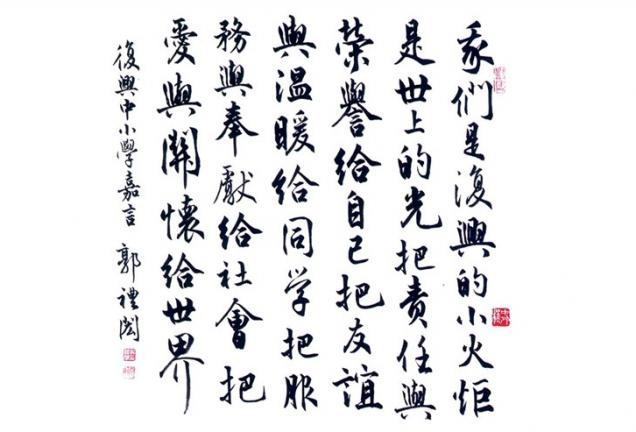 我們是復興的小火炬
是世上的光把責任與
榮譽給自己把友誼
與温暖給同学把服
務與奉獻給社會把
愛與關懷給世界
復興中小學嘉言 郭禮閎